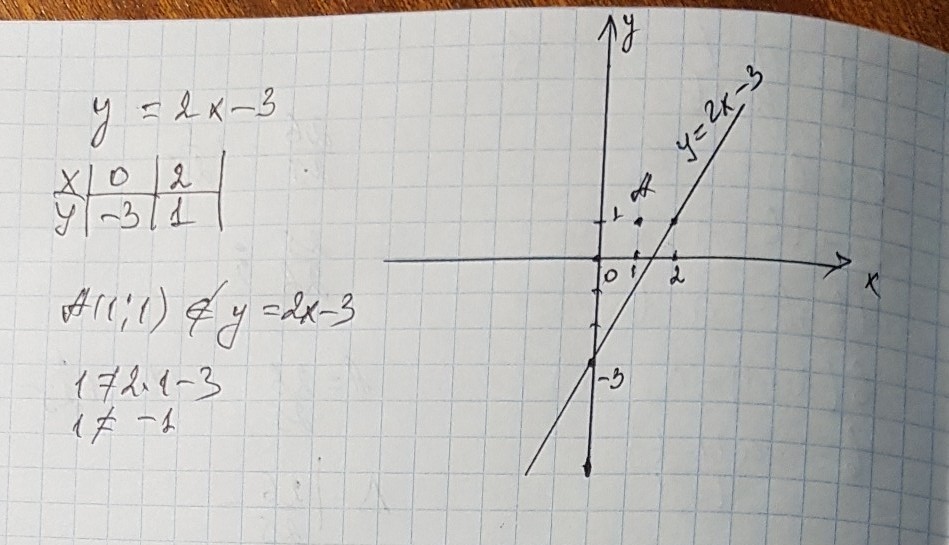 y = 2x-3
x | 0 | 2 |
y | -3 | 1 |
A(1;1) ∉ y = 2x-3
1 ≠ 2·1-3
1 ≠ -1
y
y=2x-3
A
1
0 1 2
x
-3